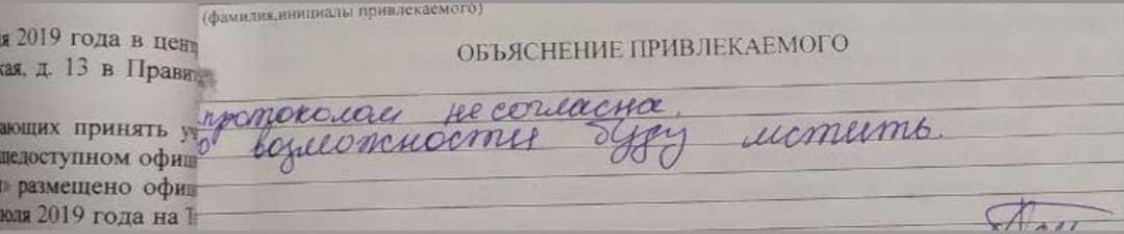 (фамилия,инициалы привлекаемого)
я 2019 года в цент
ОБЪЯСНЕНИЕ ПРИВЛЕКАЕМОГО
кая, д. 13 в Прави
протоколом не согласна.
ающих принять уч
о возможности буду мстить.
щедоступном офиц
» размещено офиц
юля 2019 года на Т